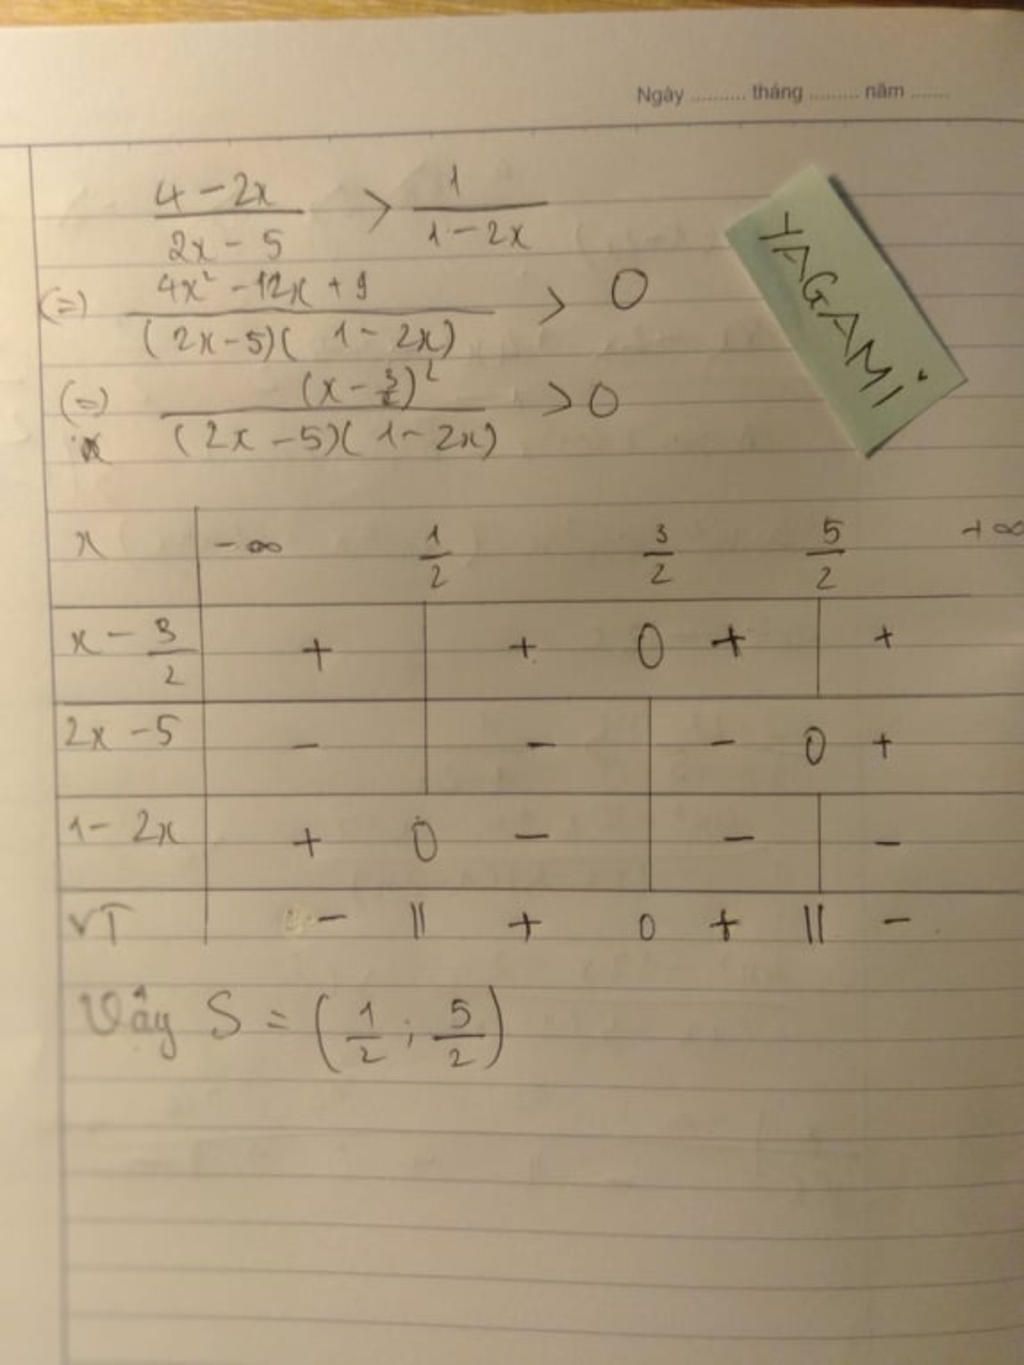 Ngày .......... tháng ......... năm .......
YAGAMi
4 - 2x / 2x - 5 > 1 / 1 - 2x
(=) 4x² - 12x + 9 / (2x - 5)( 1 - 2x) > 0
(=) (x - 3/2)² / (2x - 5)( 1 - 2x) > 0
x -∞ 1/2 3/2 5/2 +∞
x - 3/2 + | + 0 + | +
2x - 5 - | - | - 0 +
1 - 2x + 0 - | - | -
VT - || + 0 + || -
Vậy S = (1/2 ; 5/2)